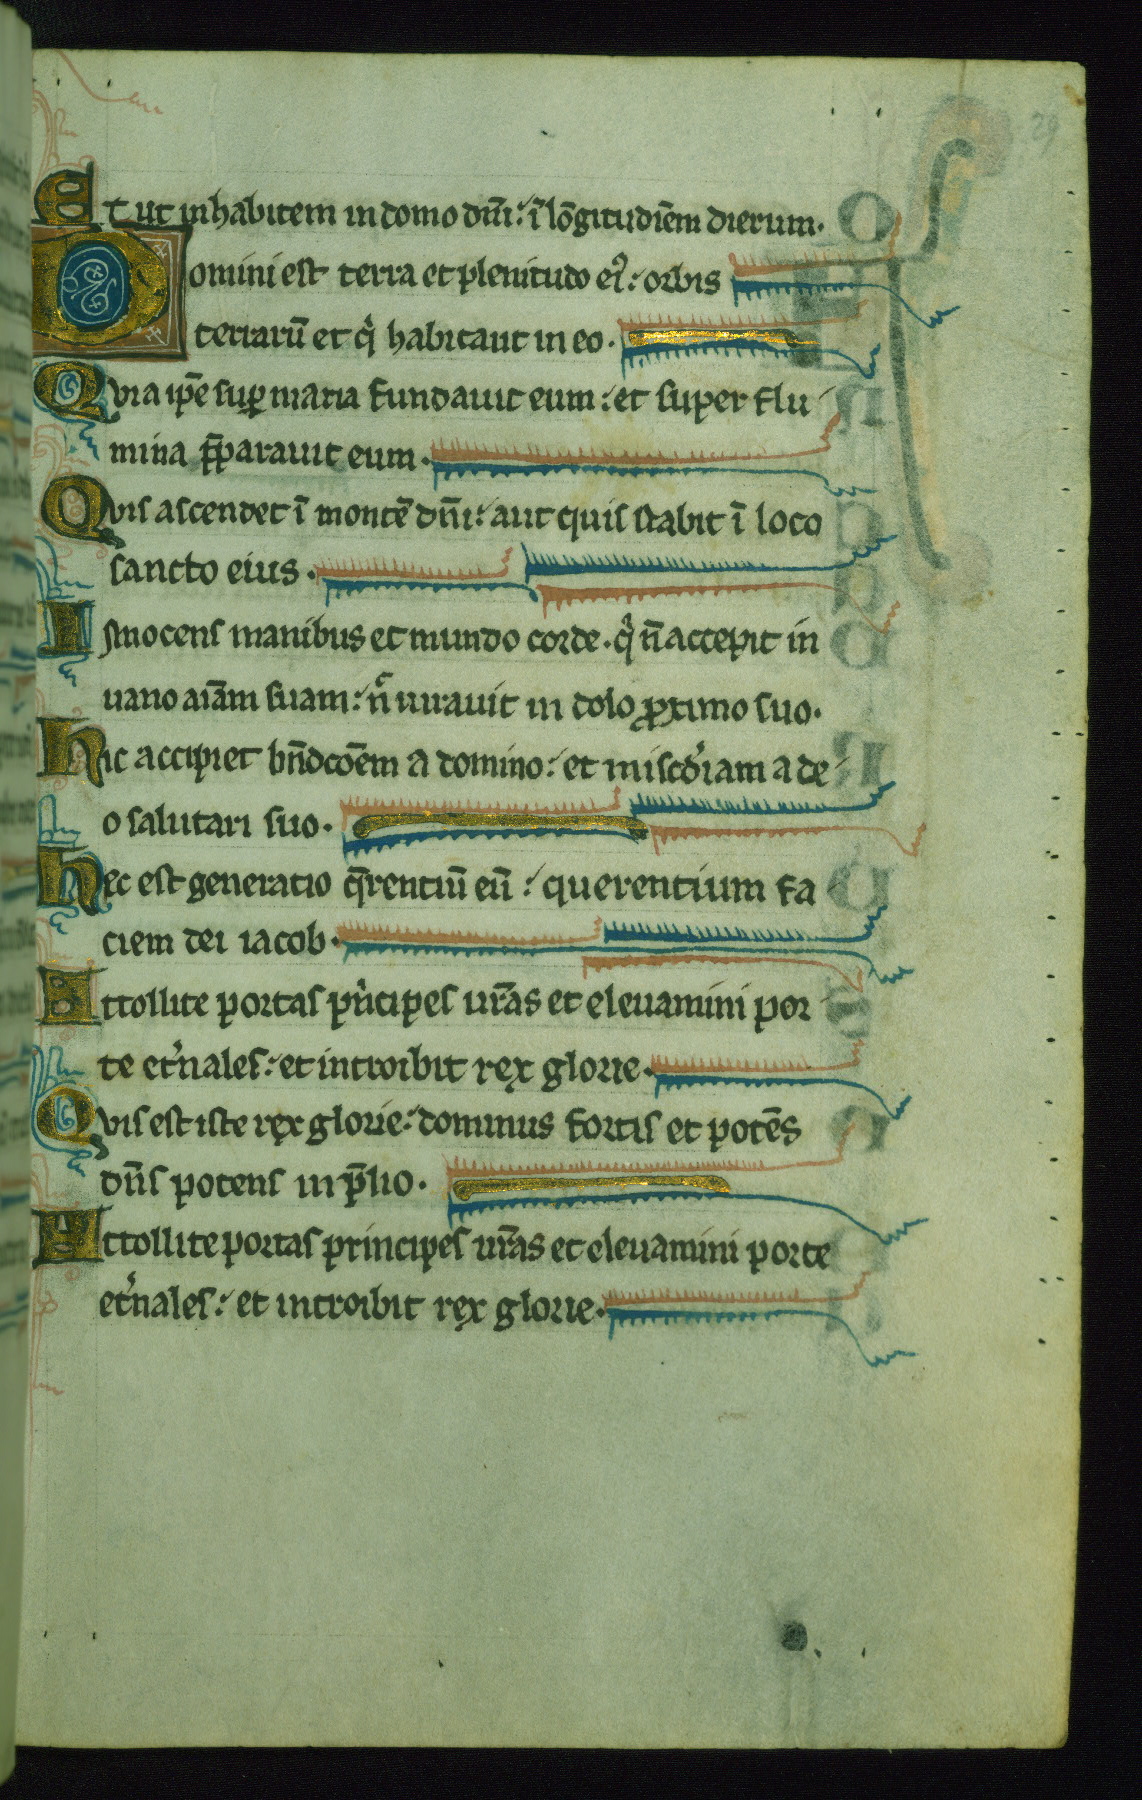 29
Et ut inhabitem in domo dn̄i: ī lōgitudiēm dierum.
Domini est terra et plenitudo eiꝰ: orbis
terrarū et qͥ habitant in eo.
Quia ip̄e suꝑ maria fundauit eum: et super flu
mina p̄parauit eum.
Quis ascendet ī montē dn̄i: aut quis stabit ī loco
sancto eius.
Innocens manibus et mundo corde. qͥ n̄ accepit in
uano aīam suam: n̄ iurauit in dolo ꝓximo suo.
Hic accipiet bn̄dcōem a domino: et misc̄diam a de
o salutari suo.
Hec est generatio q̄rentiū eū: querentium fa
ciem dei iacob.
Attollite portas pͥncipes ur̄as et eleuamini por
te et̾nales: et introibit rex glorie.
Quis est iste rex glorie: dominus fortis et potēs
dn̄s potens in p̄lio.
Attollite portas principes ur̄as et eleuamini porte
et̾nales: et introibit rex glorie.